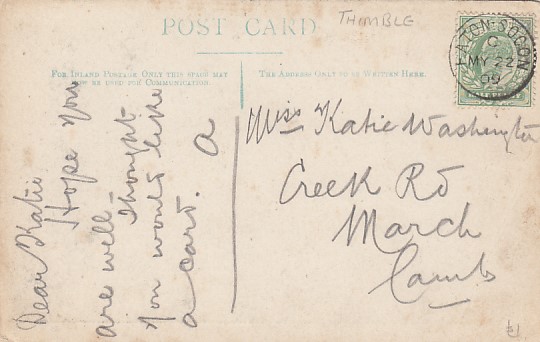 POST CARD
THIMBLE
FOR INLAND POSTAGE ONLY THIS SPACE MAY
NOW BE USED FOR COMMUNICATION
THE ADDRESS ONLY TO BE WRITTEN HERE.
EATON-SOCON
C
MY 22
09
Dear Katie
Hope you
are well
thought
you would like
a card. A
Miss Katie Washington
Creek Rd
March
Cambs